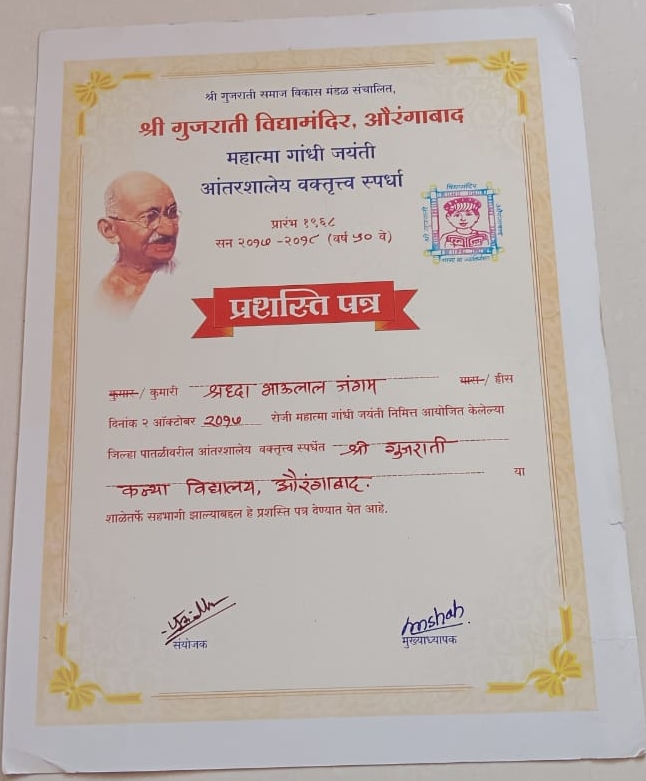 श्री गुजराती समाज विकास मंडळ संचालित,
श्री गुजराती विद्यामंदिर, औरंगाबाद
महात्मा गांधी जयंती
आंतरशालेय वक्तृत्त्व स्पर्धा
प्रारंभ १९६८
सन २०१७ -२०१८ (वर्ष ५० वे)
प्रशस्ति पत्र
कुमार / कुमारी श्रध्दा भाऊलाल जंगम यास / हीस
दिनांक २ ऑक्टोबर २०१७ रोजी महात्मा गांधी जयंती निमित्त आयोजित केलेल्या
जिल्हा पातळीवरील आंतरशालेय वक्तृत्त्व स्पर्धेत श्री गुजराती
कन्या विद्यालय, औरंगाबाद. या
शाळेतर्फे सहभागी झाल्याबद्दल हे प्रशस्ति पत्र देण्यात येत आहे.
mshah
संयोजक मुख्याध्यापक